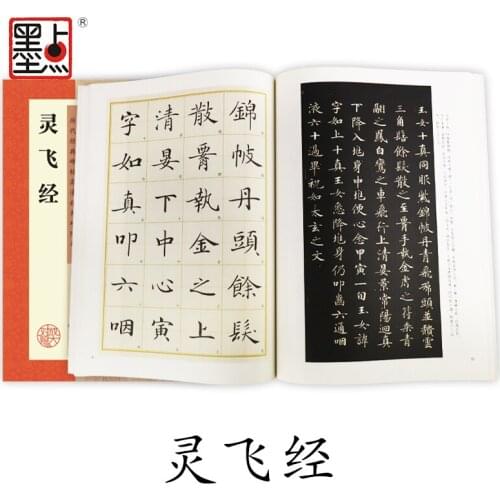 墨点®
灵飞经
錦帔丹頭餘髮
散腰執金之上
清晏下中心寅
字如真叩六咽
玉女十真同服紫錦帔丹青飛裙頭並頹雲
三角髻餘髮散之至腰手執金虎之符乘青
翮之鳳白鸞之車飛行上清晏景常陽迴真
下降入兆身中兆便心念甲寅一旬玉女諱
字如上十真玉女悉降兆身仍叩齒六通咽
液六十過畢祝如太玄之文
灵飞经